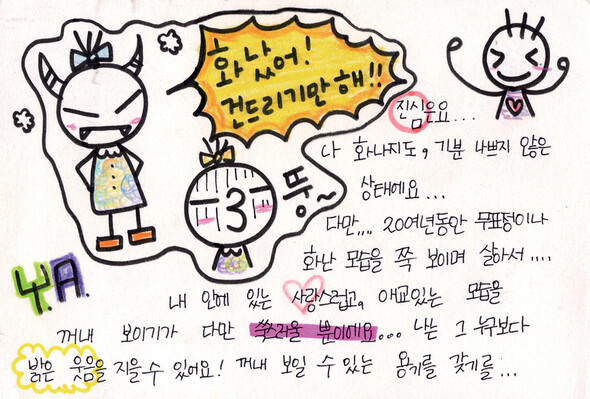 화 났어!
건드리기만 해!!
3
뚱~
진심은요...
나 화나지도, 기분 나쁘지 않은
상태에요...
다만,,,, 20여년동안 무표정이나
화난 모습을 쭉 보이며 살아서....
Y.A.
내 안에 있는 사랑스럽고, 애교있는 모습을
꺼내 보이기가 다만 쑥스러울 뿐이에요... 나는 그 누구보다
밝은 웃음을 지을 수 있어요! 꺼내 보일 수 있는 용기를 갖기를...